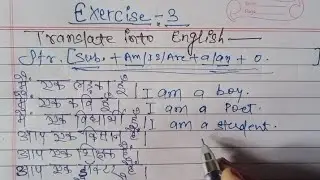 Exercise - 3
Translate into English
Str. [Sub. + Am/Is/Are + a/an + o.
मैं एक लड़का हूँ। I am a boy.
मैं एक कवि हूँ। I am a Poet.
मैं एक विद्यार्थी हूँ। I am a student.
आप एक किसान हैं।
आप एक शिक्षक हैं।
आप एक डॉक्टर हैं।